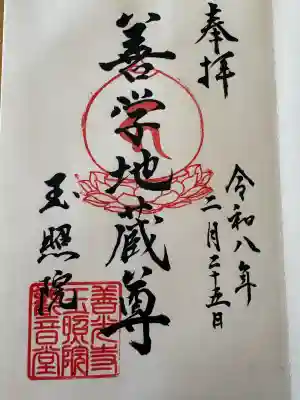 奉拝
令和八年
二月二十五日
善学地蔵尊
玉照院
善光寺
玉照院
観音堂